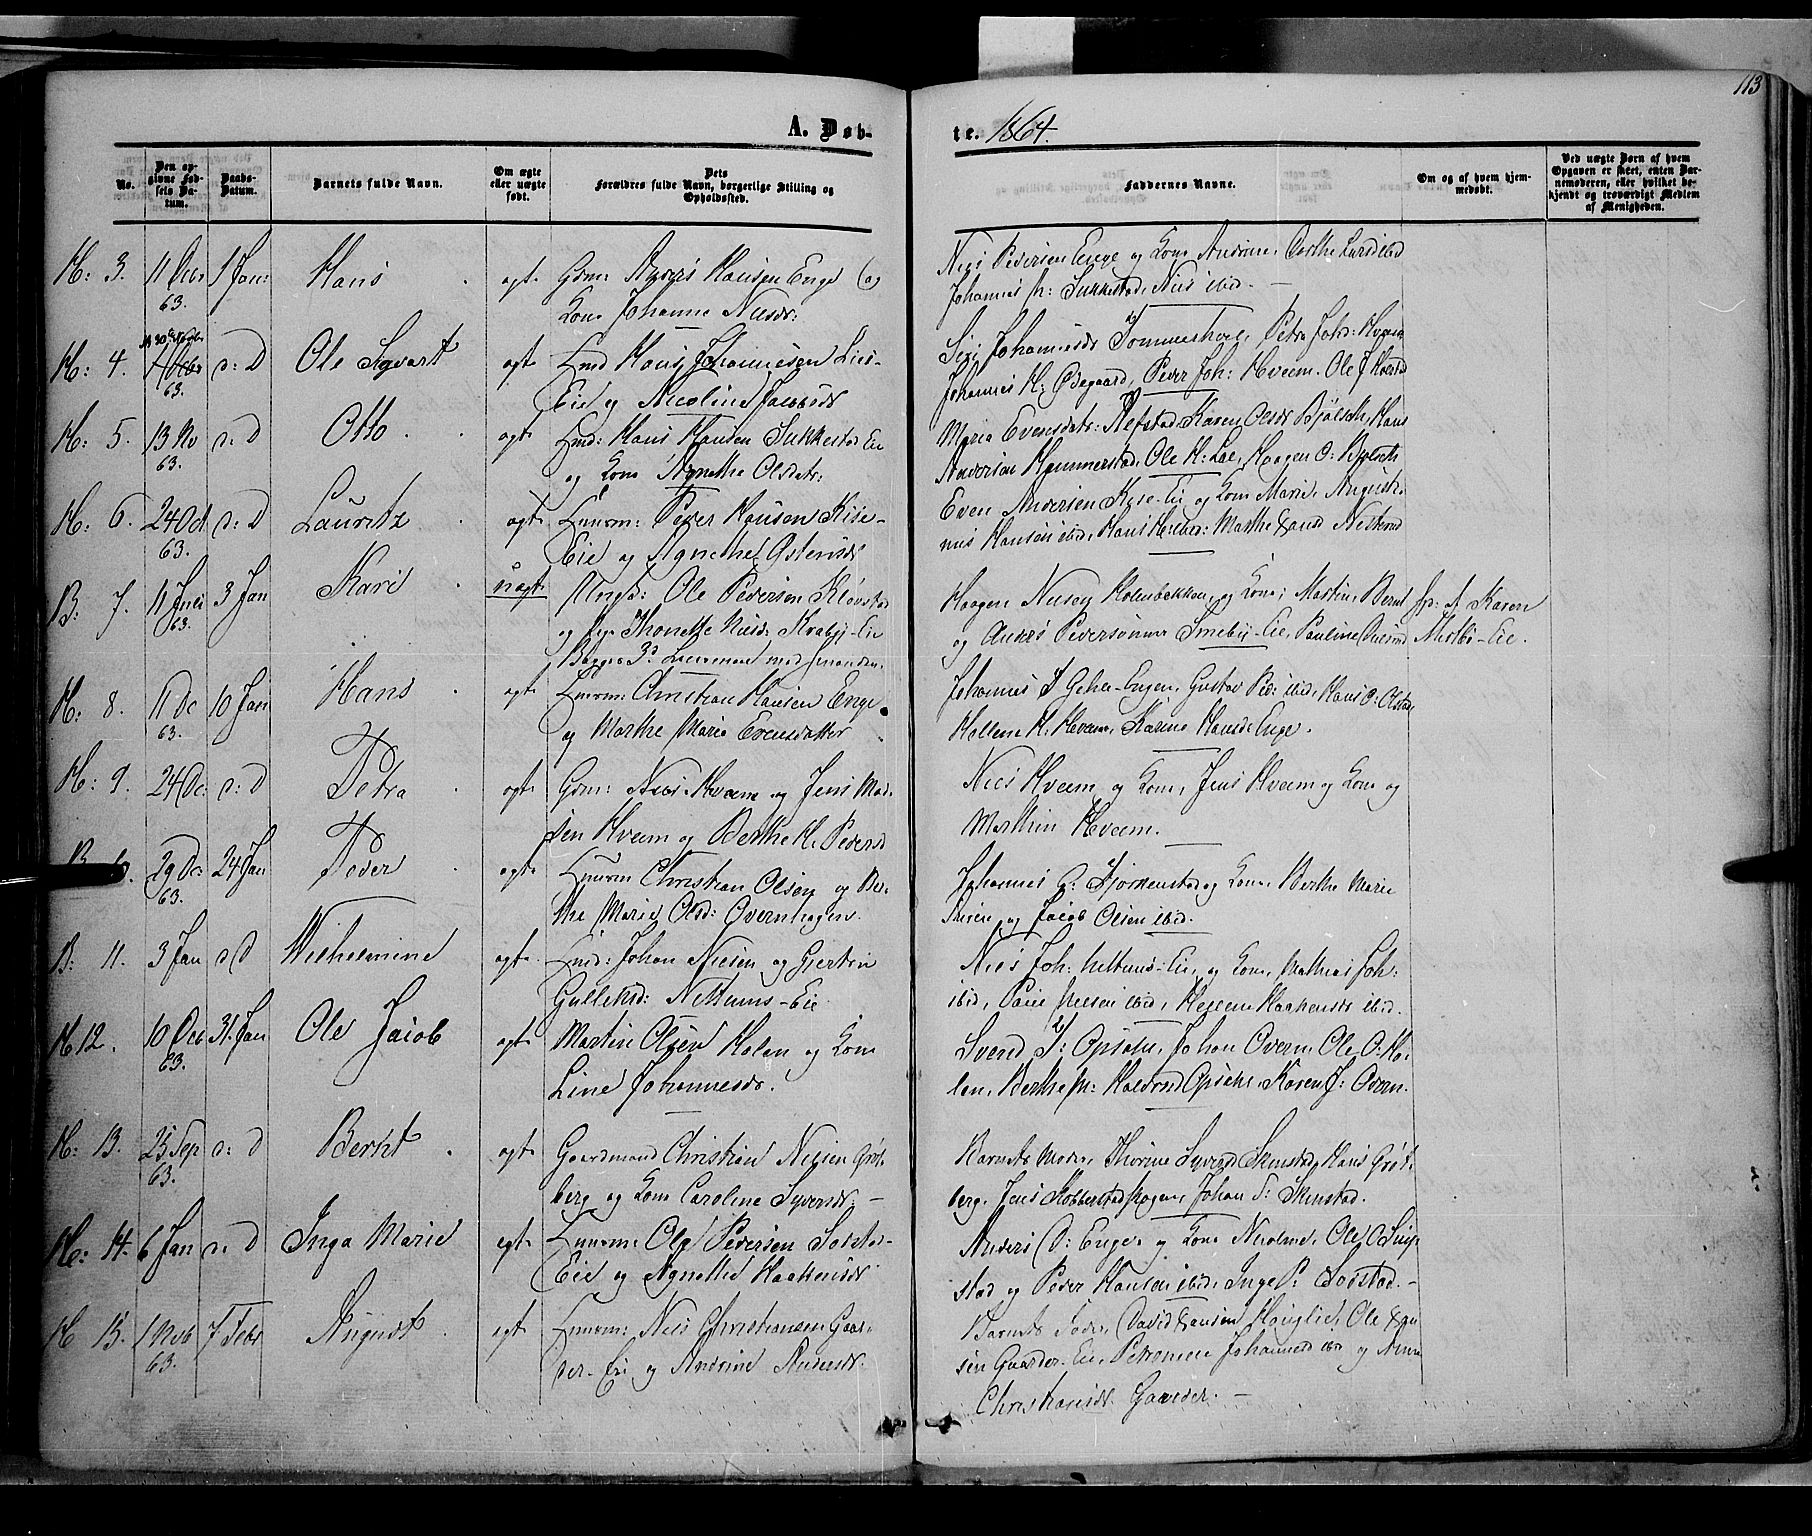 113
A. Døb-
te. 1864.
No.
Den opgivne Fødsels Datum.
Daabs-Datum.
Barnets fulde Navn.
Om ægte eller uægte født.
Dets Forældres fulde Navn, borgerlige Stilling og Opholdssted.
Faddernes Navne.
Om og af hvem hjemmedøbt.
Ved uægte Børn af hvem Opgaven er skeet, enten Barnemoderen, eller hvilket bekjendt og troværdigt Medlem af Menigheden.
H: 3. 11 Decbr 63. 1 Jan: Hans ægte Grm: Anders Hansen Enge og
Kone Johanne Nielsdr:
Niels Pedersen Enge og Kone Andrine, Dorthe Larsd ibid
Johannes P: Sukkestad, Niels ibid. —
H: 4. 63. d: D Ole Syvart ægte Inds Hans Johannesen Lies-
Eie og Nicoline Jacobsdr
Siri Johannesdr Tommershoel, Petra Joh: Hveem
Johannes H: Ødegaard, Peder Joh: Hveem. Ole J Kolstad
H: 5. 13 Nv 63. d: D Otto. ægte Inds: Hans Hansen Sukkestad Eie
og Kone Agnethe Olsdatr:
Maria Evensdatr: Alfstad, Karen Olsdr Bjølseth, Hans
Andersen Hammerstad, Ole H: Loe, Haagen O: Bjølseth
H: 6. 24 Oct 63. d: D Lauritz ægte Huusm: Peder Hansen Kise-
Eie og Agnethe Østensdr
Even Andersen Kise-Eie og Kone Marie, August
Hansen ibid, Hans ibid: Marthe
B: 7. 11 Juli 63. 3 Jan Kari uægte Ungk: Ole Pedersen Kløvstad
og Pige Thonette Nilsd: Kraby-Eie
Begges 3d Leiermaal med hinanden.
Haagen Nilsen Holmbekken, og Kone, Martin, Bernt
og Anders Pedersønner Smeby-Eie, Pauline
Karen
Eie.
H: 8. 11 Dc 63. 10 Jan Hans ægte Huusm: Christian Hansen Enge
og Marthe Maria Evensdatter
Johannes Enger, Gustav Ped: ibid, Hans O: Alstad
Hellene H. Hveem, Karine Hansd: Enge.
H: 9. 24 Dc: d: D Petra ægte Grm: Niels Hveem og Jens Mad-
sen Hveem og Berthe H. Pedersd
Niels Hveem og Kone, Jens Hveem og Kone og
Mathias Hveem.
B 29 Dc: 63. 24 Jan Peder ægte Huusm Christian Olsen og Ber-
the Marie Olsd: Overnhagen.
Johannes P: Fjorkenstad og Kone, Berthe Marie
og Jacob Olsen ibid.
B: 11. 3 Jan d: D Wilhelmine ægte Inds: Johan Nielsen og Gjertin
Gulleksd: Nettums-Eie
Niels Joh: Nettums-Eie, og Kone, Mathias Joh:
ibid, Nielsen ibid, Hellene Haakensdr ibid.
H 12. 10 Dcb 63. 31. Jan Ole Jacob ægte Martin Olsen Holen og Kone
Line Johannesdr.
Svend J: Opsahl, Johan Overn, Ole O: Ho-
len, Berthe M: Halvorsd Opsahl, Karen J: Overn.
H: 13. 25 Sep 63. d: D Berht. ægte Gaardmand Christian Nielsen Grøt-
berg og Kone Caroline Syversdr: —
Barnets Moder, Thorine Syversd Skinstad, Hans Grøt-
berg. Jens Skobberstadhagen, Johan S: Skinstad.
H: 14. 6 Jan d: D Inga Marie ægte Huusm: Ole Pedersen Solstad-
Eie og Agnethe Haakensdr
Anders O: Enge og Kone Nicoline, Ole O
stad og Peder Hansen ibid, Inge P: Solstad. —
H 15. 1 Novb 63. 7 Febr August. ægte Huusm: Niels Christiansen Gaar-
der-Eie og Andrine Andersdr.
Barnets Fader, David Hansen Houglie, Ole Han-
sen Gaarder-Eie, Petromine Johannesd ibid og Anne
Christiansdr Gaarder. —